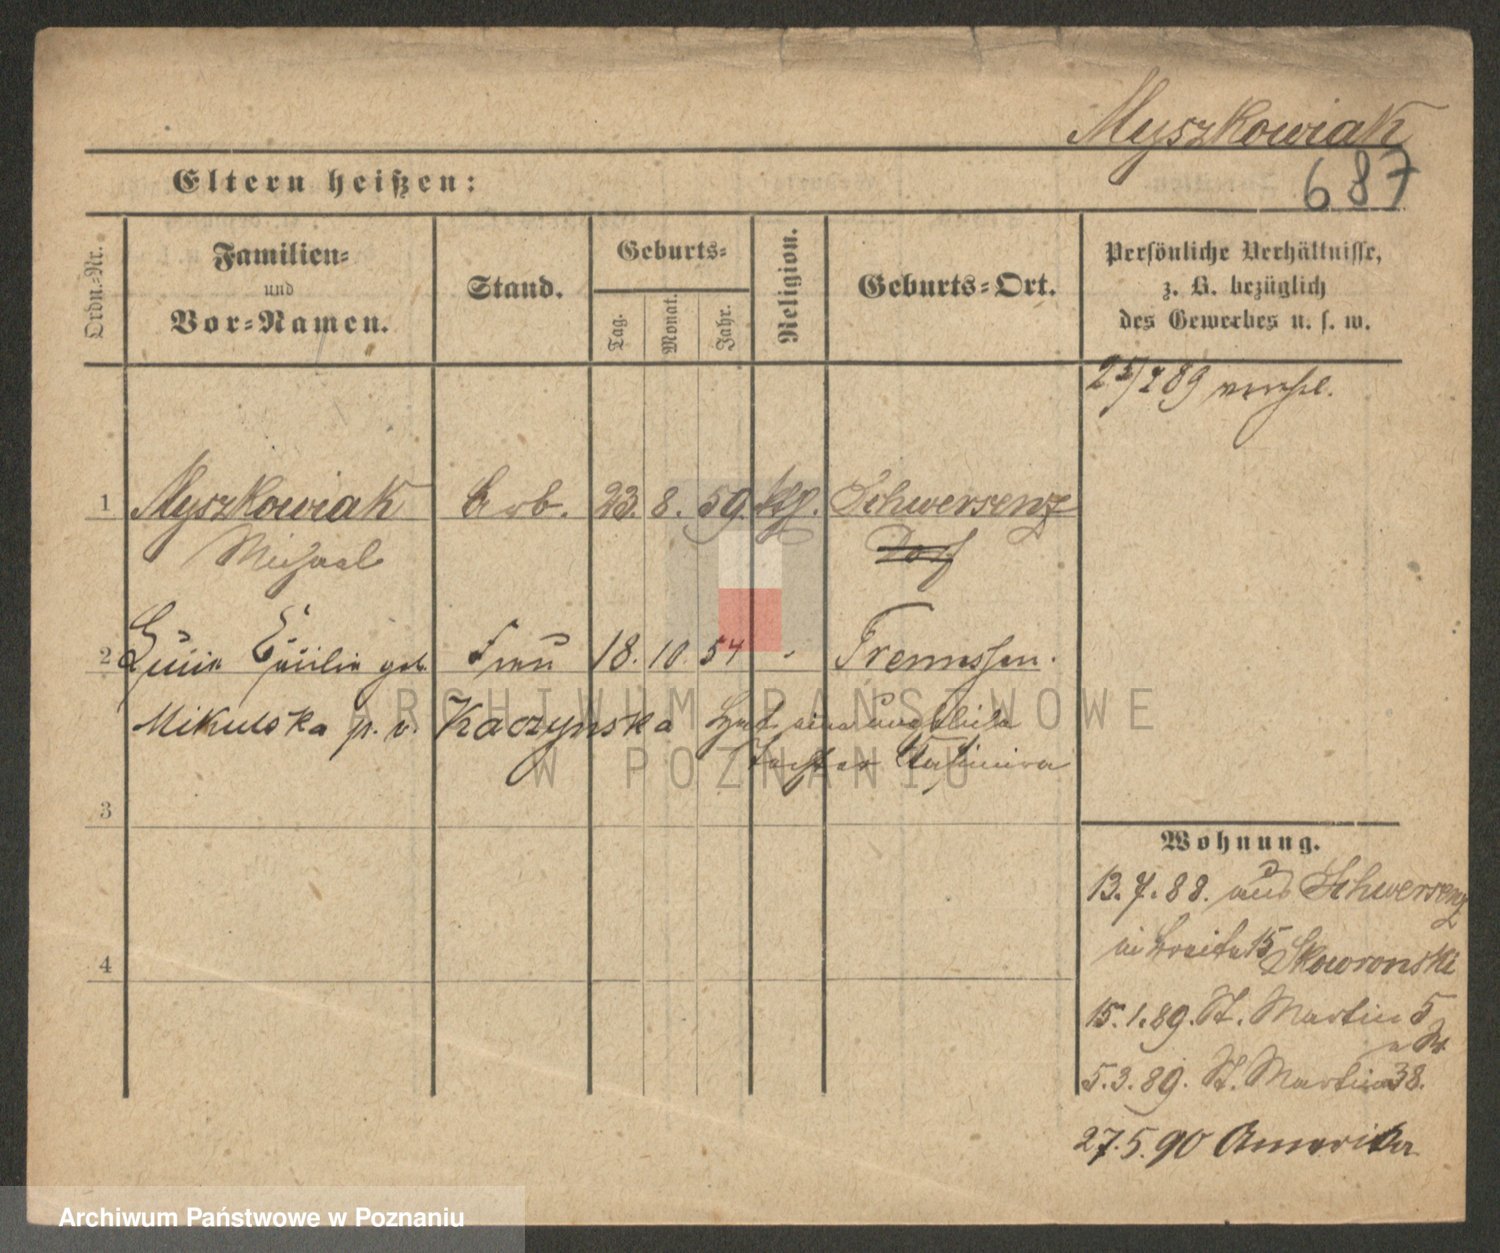 Myszkowiak
687
Eltern heißen:
Ordn.-Nr.
Familien-
und
Vor-Namen.
Stand.
Geburts-
Tag.
Monat.
Jahr.
Religion.
Geburts-Ort.
Persönliche Verhältnisse,
z. B. bezüglich
des Gewerbes u. s. w.
verhl.
1 Myszkowiak Arb. 23. 8. 59. kth. Schwersenz
Michael Dorf
2 Frau 18. 10. 54 Tremessen.
Mikulska p. v. Kaczynska hat eine uneheliche
Tochter Kasimira
3
4
Wohnung.
13.7.88. aus Schwersenz
Breite 15 Skowronski
15.1.89. St. Martin 5
5.3.89. St. Martin 38.
27.5.90 Amerika
ARCHIWUM PAŃSTWOWE
W POZNANIU
Archiwum Państwowe w Poznaniu